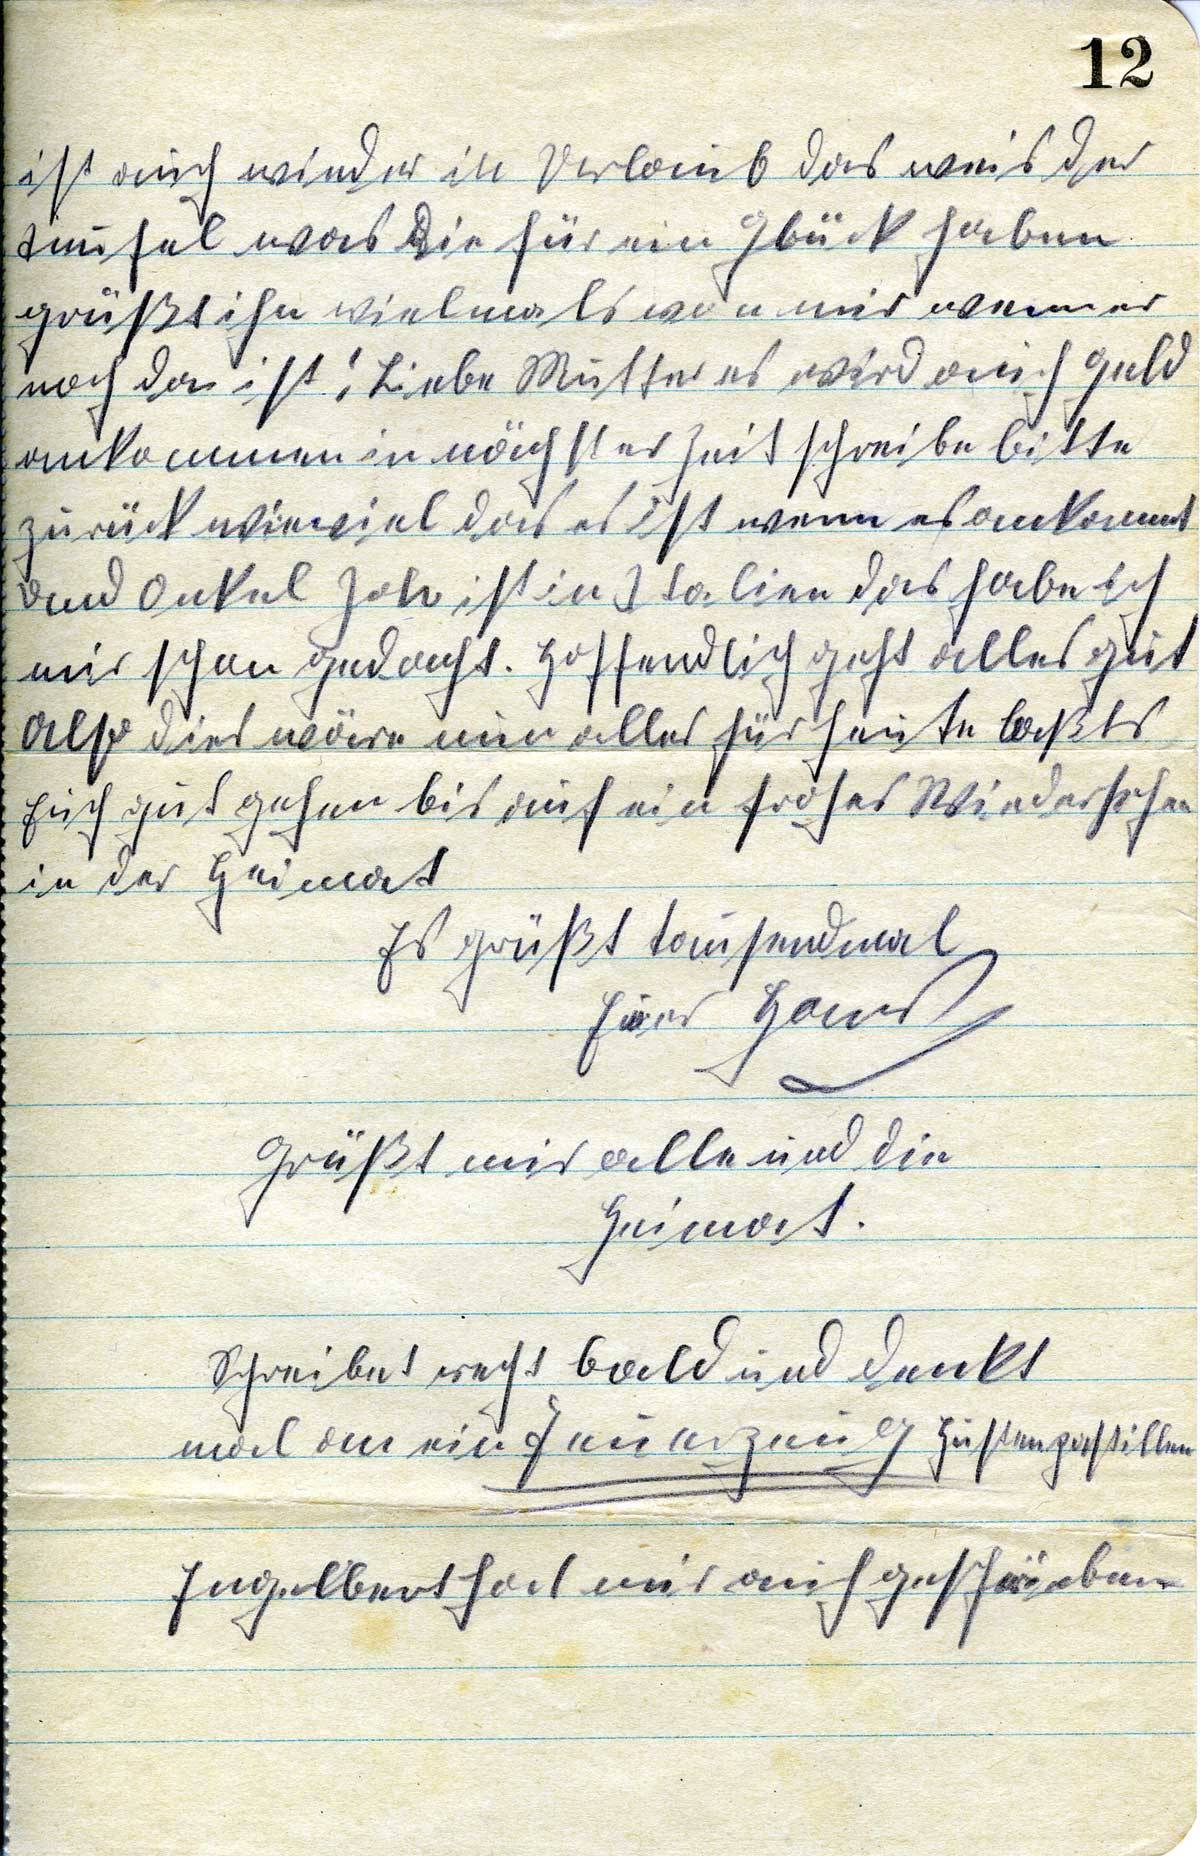 12
ist auch wieder in Urlaub das weis der
teufel was Die für ein Glück haben
grüßt ihn vielmals von mir wenn er
noch da ist! Liebe Mutter es wird auch Geld
ankommen in nächster Zeit schreibe bitte
zurück wieviel das es ist wenn es ankommt
und Onkel Joh ist in Italien das habe ich
mir schon gedacht. Hoffendlich geht alles gut
Also dies wäre nun alles für heute laßts
Euch gut gehen bis auf ein frohes Wiedersehen
in der Heimat
Es grüßt tausendmal
Euer Hans
Grüßt mir alle und die
Heimat.
Schreibet recht bald und denkt
mal an ein Feuerzeug Hustenpastillen
Engelbert hat mir auch geschrieben